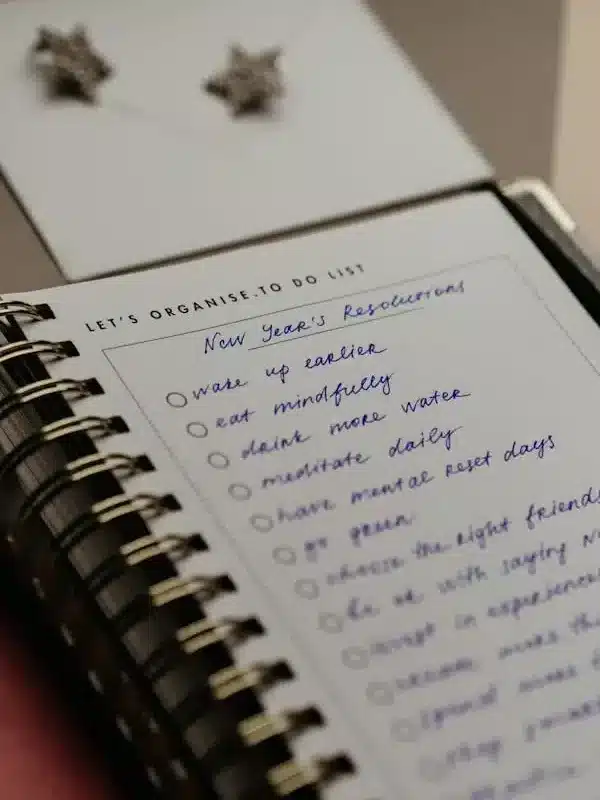 LET'S ORGANISE.TO DO LIST
New Year's Resolutions
wake up earlier
eat mindfully
drink more water
meditate daily
have mental reset days
go green
choose the right friends
be ok with saying
invest in experiences